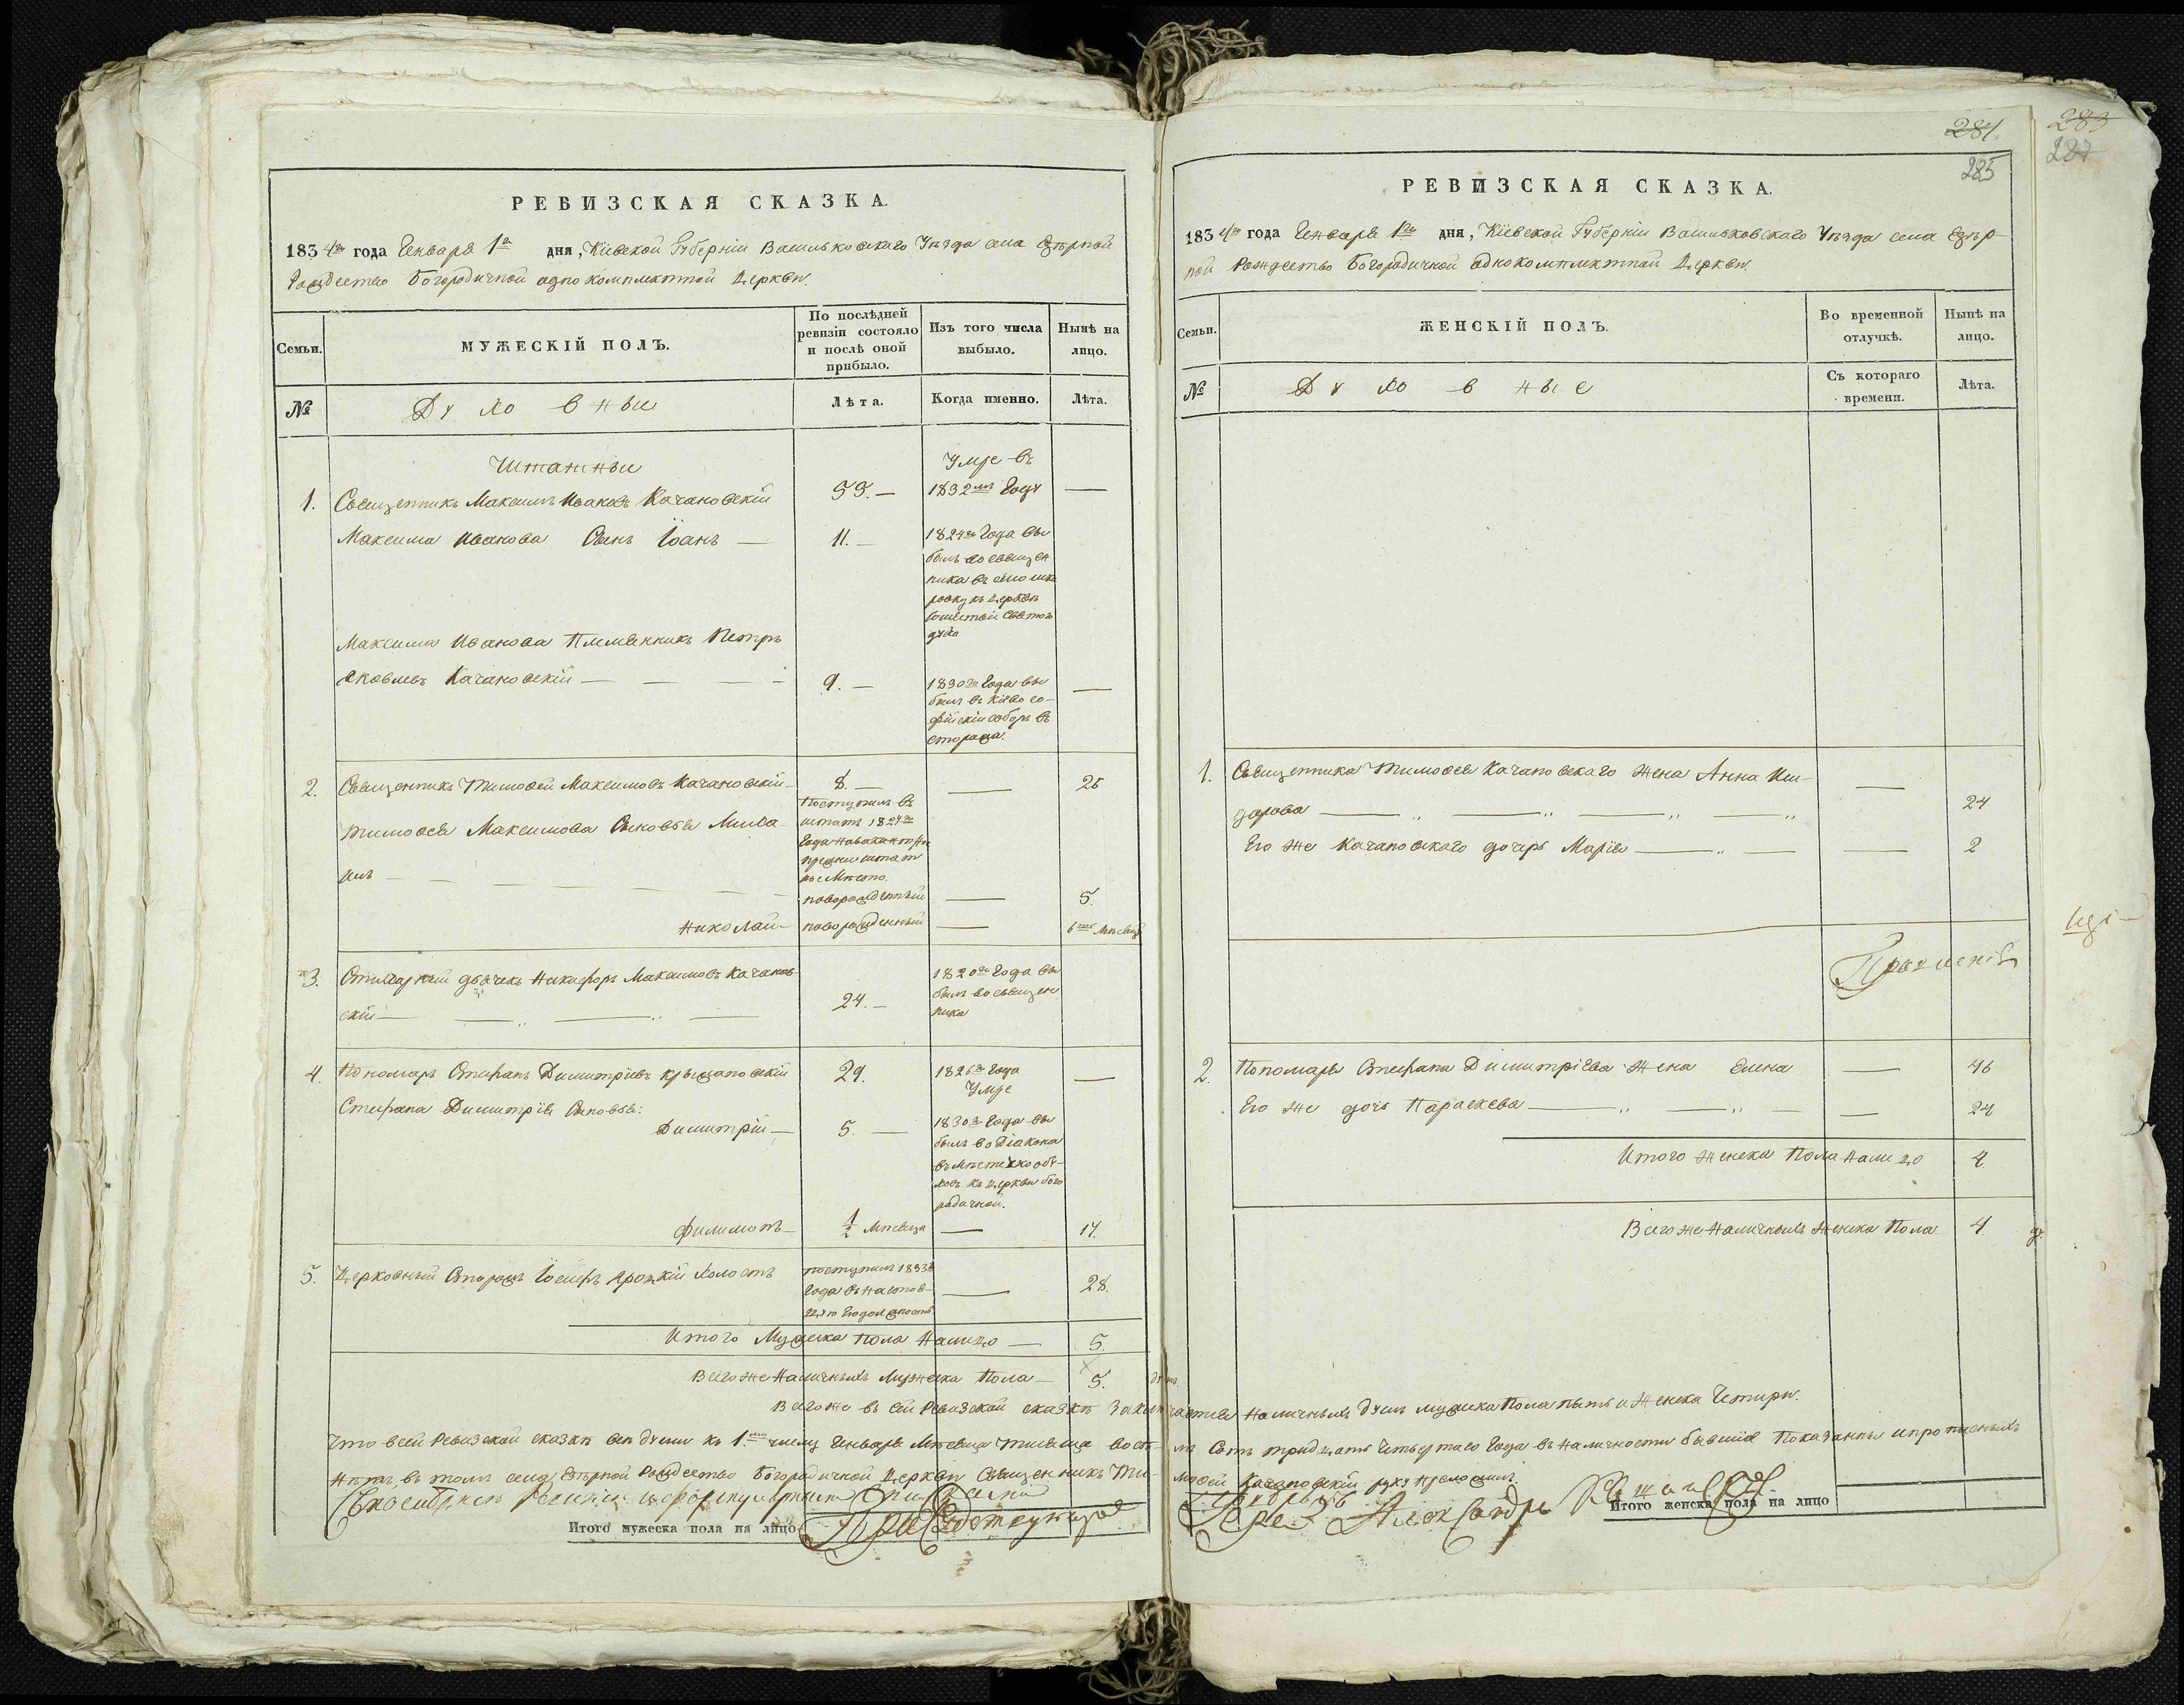 РЕВИЗСКАЯ СКАЗКА.
1834го года Генваря 1го дня, Кіевской Губерніи Васильковскаго Уѣзда села Езѣрной
Рождество Богородичной однокомплектной Церкви.
Семьи.
МУЖЕСКІЙ ПОЛЪ.
По послѣдней
ревизіи состояло
и послѣ оной
прибыло.
Изъ того числа
выбыло.
Нынѣ на
лицо.
№
Духовные
Лѣта.
Когда именно.
Лѣта.
Штатные
1. Священникъ Максимъ Ивановъ Качановскій
55. —
Умре въ
1832мъ году
—
Максима Иванова Сынъ Іоанъ —
11. —
1824го Года вы
былъ во священ
ника въ
къ Церкви
Сошествія Святого
духа
Максима Иванова Племянникъ Петръ
Яковлевъ Качановскій — — —
9. —
1830го Года вы
былъ въ Кіево со-
фійскій соборъ въ
сторожа.
—
2. Священникъ Тимофей Максимовъ Качановскій —
8. —
Поступилъ въ
штатъ 1824го
Года
мѣсто.
—
26
Тимофея Максимова Сыновья Миха-
илъ — — — — — —
новорожденный
—
5.
Николай —
новорожденный
—
6ти Мѣсяцъ
3. дьячекъ Никифоръ Максимовъ Качанов-
скій — — —
24. —
1820го Года вы
былъ во священ
ника
4. Пономарь Стефанъ Димитріевъ Крыжановскій
29.
1826го Года
Умре
—
Стефана Димитріева Сыновья:
Димитрій —
5. —
1830го Года вы
былъ во Діакона
въ Мѣстечко Обу-
ховъ къ Церкви Бого
родичной.
Филимонъ —
½ Мѣсяца
—
14.
5. Церковный Сторожъ Іосифъ Яроцкій Холостъ
поступилъ 1833
Года въ настоя-
щую Его должность
—
28.
Итого Мужеска Пола Налицо —
5.
Всего же Наличныхъ Мужеска Пола —
5. душъ
РЕВИЗСКАЯ СКАЗКА.
1834го года Генваря 1го дня, Кіевской Губерніи Васильковскаго Уѣзда села Езѣр-
ной Рождество Богородичной однокомплектной Церкви.
281.
285
283
287
Семьи.
ЖЕНСКІЙ ПОЛЪ.
Во временной
отлучкѣ.
Нынѣ на
лицо.
№
Духовные
Съ котораго
времени.
Лѣта.
1. Священника Тимофея Качановскаго жена Анна Иси-
дорова — — — —
—
24
Его же Качановскаго дочерь Марія — —
—
2
2. Пономаря Стефана Димитріева Жена Елена
—
46
Его же дочь Параскева — — —
—
24
Итого Женска Пола Налицо
4.
Всего же Наличныхъ Женска Пола
4
Всего же въ сей Ревизской сказкѣ Заключается Наличныхъ душъ мужска Пола пять и Женска Четыри.
Что всей Ревизской сказкѣ всѣ души къ 1му числу Генваря Мѣсяца Тысяща восемъ Сотъ тридцать Четвертаго Года въ наличности бывшія Показанны и
въ томъ села Езѣрной Рождество Богородичной Церкви Священникъ Тимофей Качановскій руку приложилъ.
Александръ
Итого мужеска пола на лицо
Итого женска пола на лицо